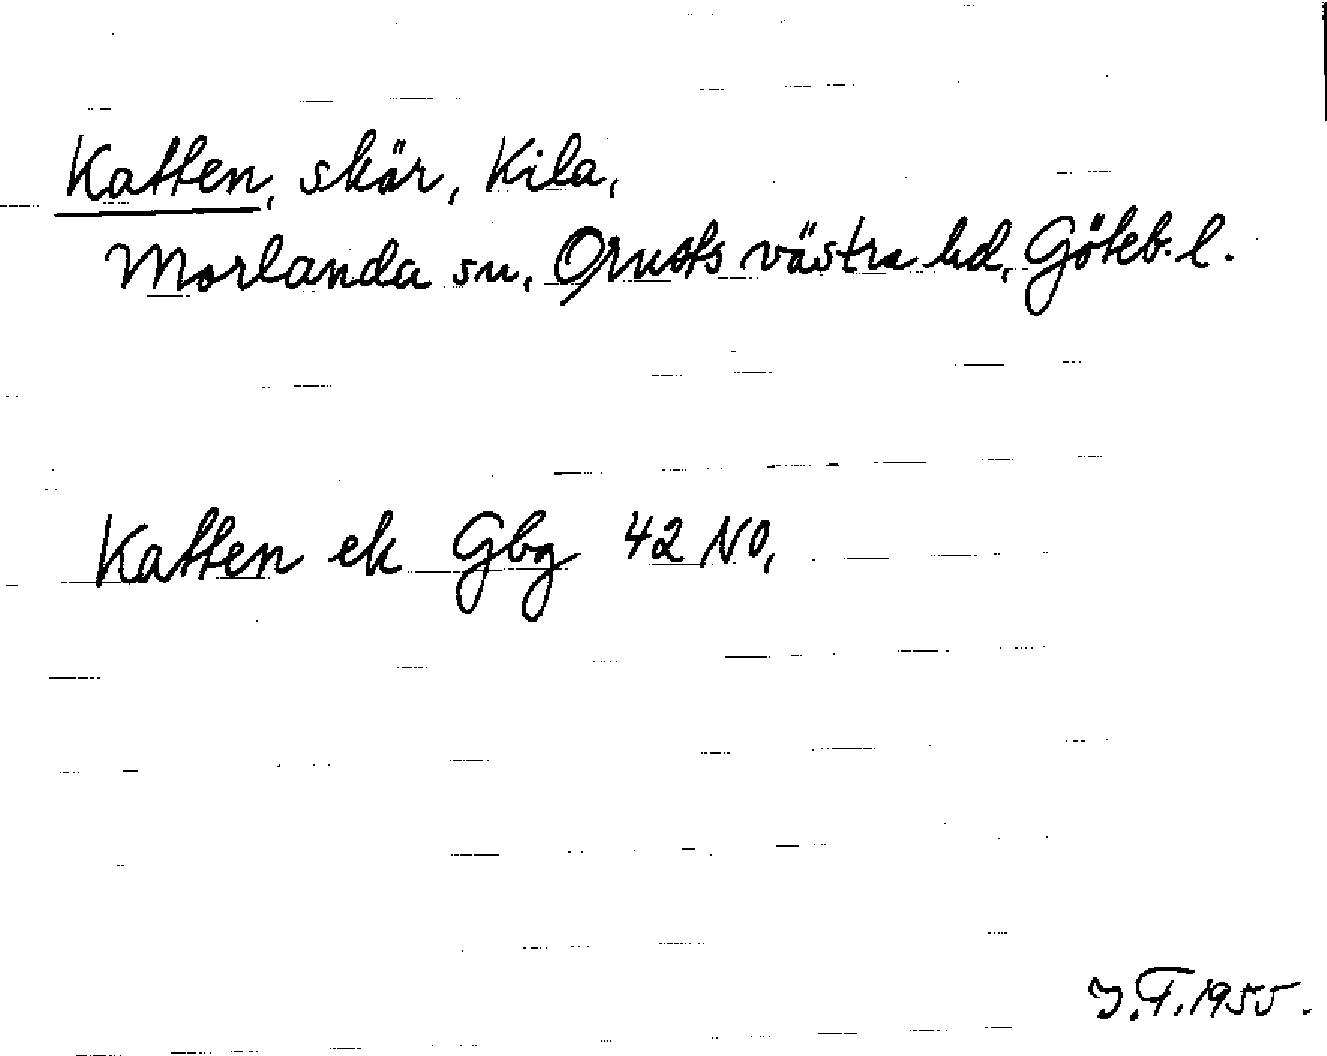 Katten, skär, Kila,
Morlanda sn, Orusts västra hd, Göteb. l.
Katten ek Gbg 42 NO,
J.T. 1955.